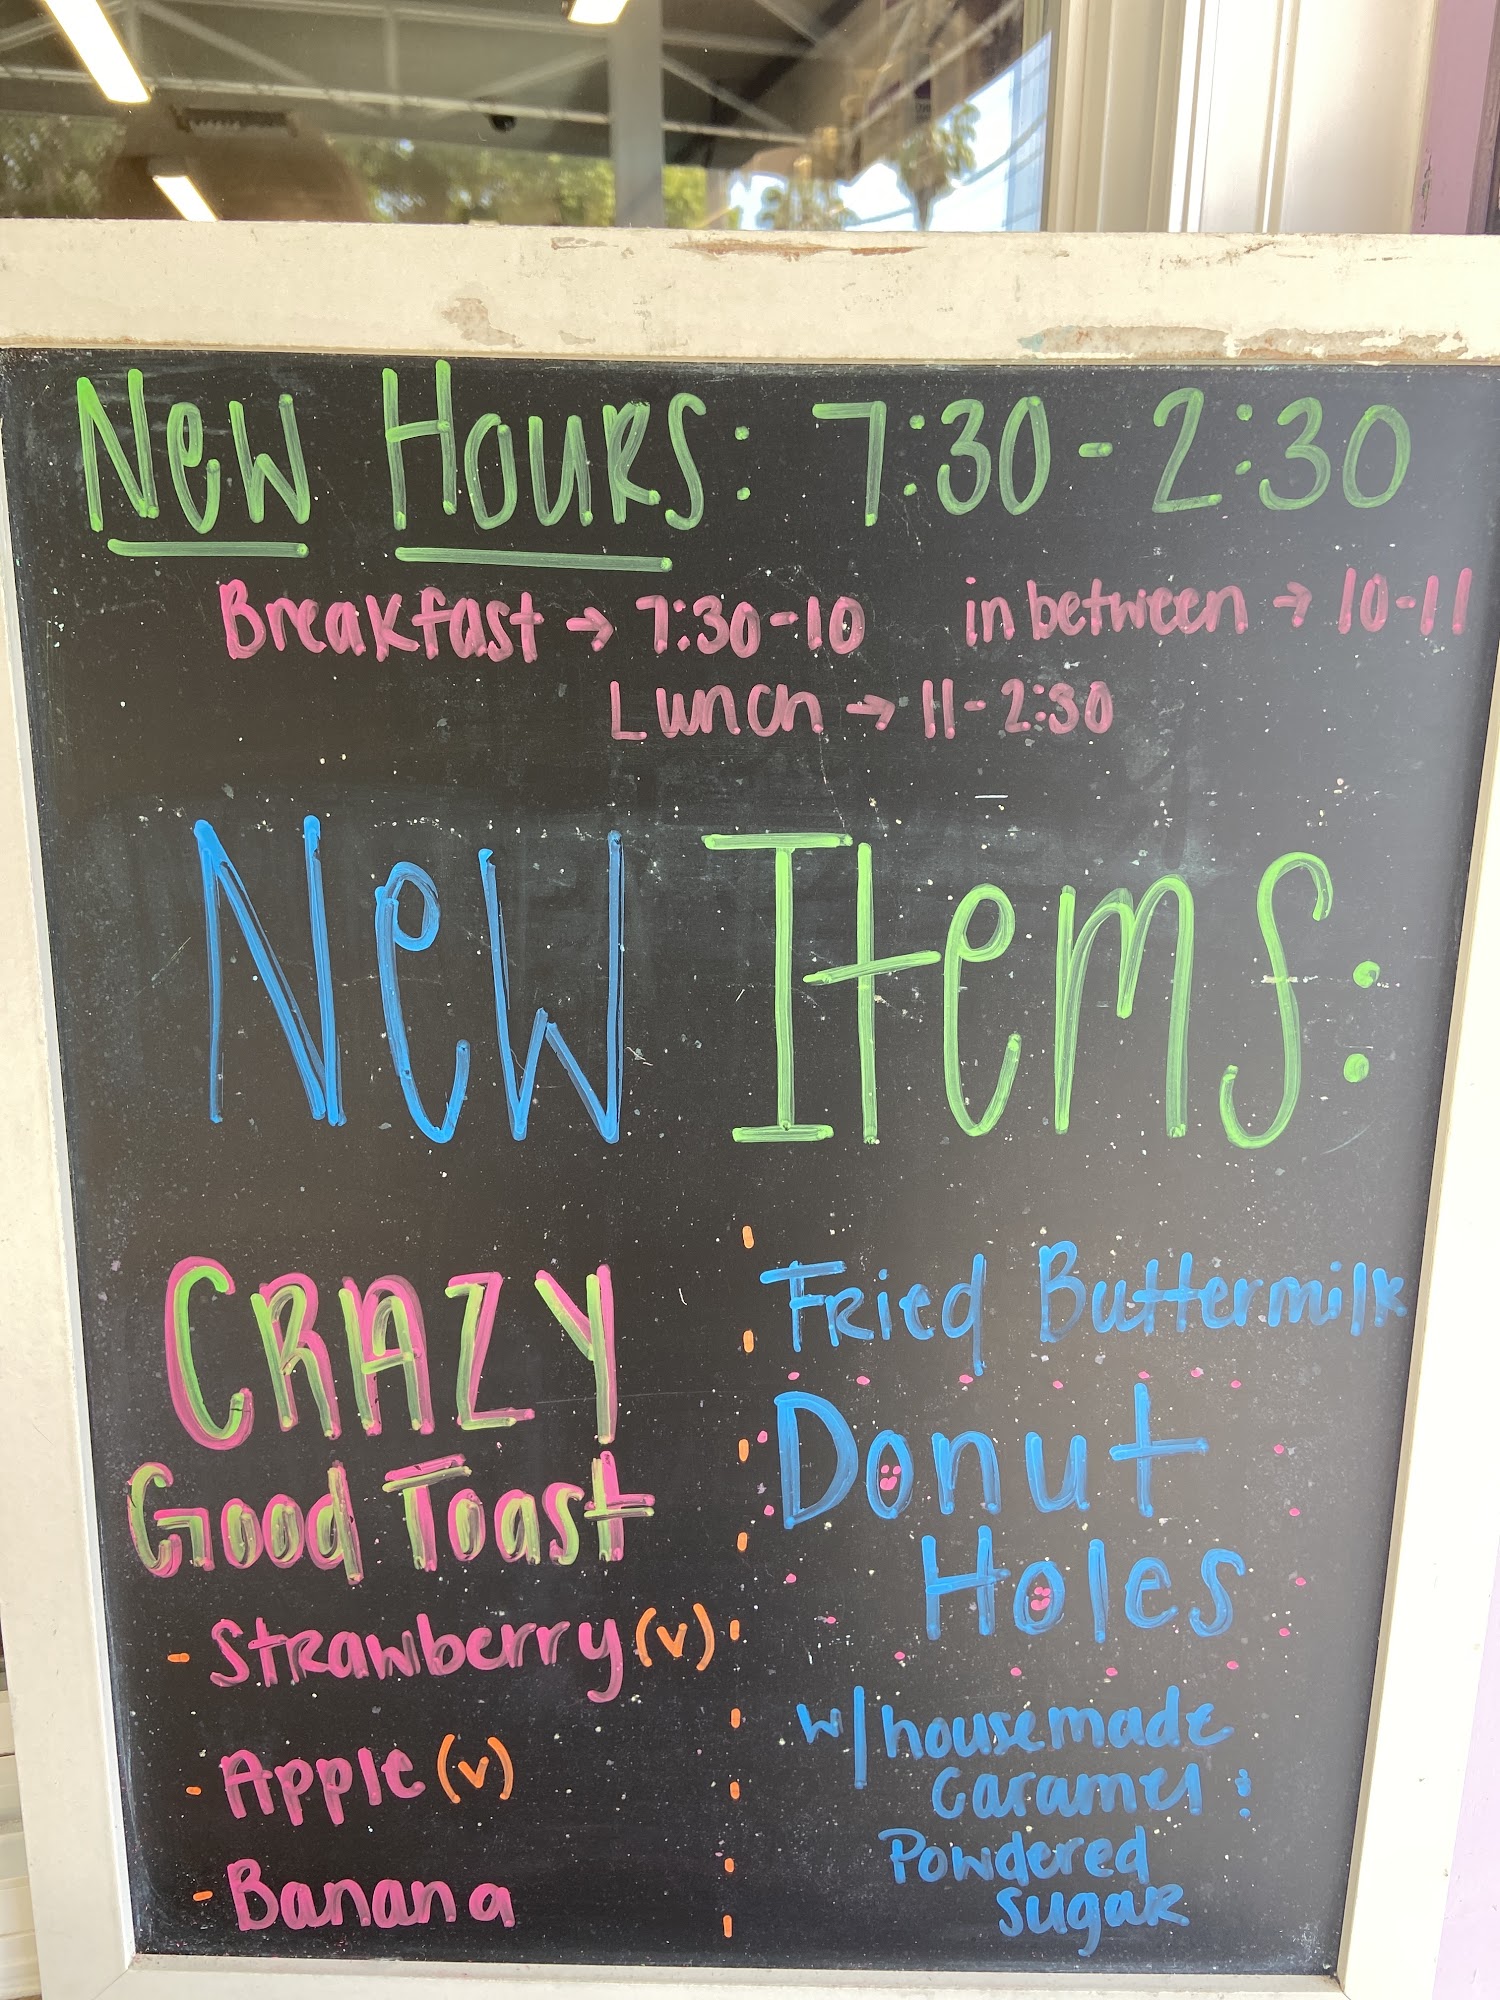 New Hours: 7:30-2:30
Breakfast → 7:30-10 in between → 10-11
Lunch → 11-2:30
New Items:
CRAZY
Good Toast
- Strawberry (v)
- Apple (v)
- Banana
Fried Buttermilk
Donut
Holes
w/ housemade
caramel &
Powdered
sugar